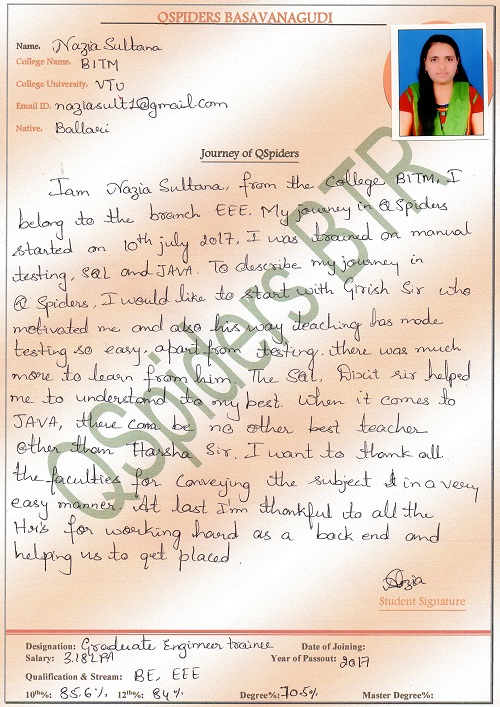 QSPIDERS BASAVANAGUDI
Name. Nazia Sultana
College Name. BITM
College University. VTU
Email ID. naziasult1@gmail.com
Native. Ballari
Journey of QSpiders
I am Nazia Sultana, from the college BITM, I
belong to the branch EEE. My journey in QSpiders
started on 10th july 2017, I was trained on manual
testing, SQL and JAVA. To describe my journey in
Q Spiders, I would like to start with Girish Sir who
motivated me and also his way teaching has made
testing so easy, apart from testing, there was much
more to learn from him. The SQL, Dixit sir helped
me to understand to my best. When it comes to
JAVA, there can be no other best teacher
other than Harsha Sir. I want to thank all
the faculties for conveying the subject in a very
easy manner. At last I'm thankful to all the
Hr's for working hard as a back end and
helping us to get placed.
QSpiders BTR
Nazia
Student Signature
Designation: Graduate Engineer trainee Date of Joining:
Salary: 3.18LPA Year of Passout: 2017
Qualification & Stream: BE, EEE
10th%: 85.6% 12th%: 84% Degree%: 70.5% Master Degree%: